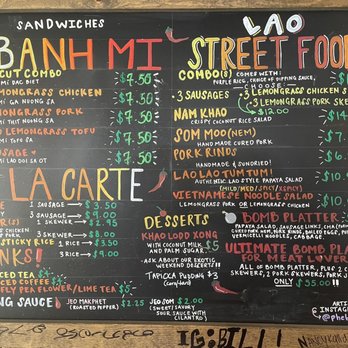 SANDWICHES
BANH MI
CUT COMBO $7.50
MI DAC BIET
LEMONGRASS CHICKEN $7.50
MI GA NUONG SA
MONGRASS PORK $7.50
MI THIT NUONG SA
LEMONGRASS TOFU $7.50
MI TOFU SA
USAGE $7.50
LA CARTE
1 SAUSAGE $3.50
3 SAUSAGE $9.00
1 SKEWER $2.95
3 SKEWERS $8.00
STICKY RICE 1 RICE $3.50
3 RICE $9.00
NKS!
ICED TEA $4
COFFEE $5
PEA FLOWER/LIME TEA $5
NG SAUCE
JEO MAKPHET $2.25
(ROASTED PEPPER)
JEO SOM $2.00
(SWEET/SAVORY
SOUR SAUCE WITH
CILANTRO)
LAO
STREET FOOD
COMBO(S) COMES WITH:
PURPLE RICE, CHOICE OF DIPPING SAUCE,
CHOOSE
3 SAUSAGES
3 LEMONGRASS CHICKEN S
3 LEMONGRASS PORK SKE
NAM KHAO $12.00
CRISPY COCONUT RICE SALAD
SOM MOO(NEM)
HAND MADE CURED PORK
PORK RINDS
HANDMADE & SUNDRIED!
LAO LAO TUM TUM!
AUTHENTIC LAO STYLE PAPAYA SALAD
(MILD/MED/SPICY/XSPICY)
VIETNAMESE NOODLE SALAD
LEMONGRASS PORK OR LEMONGRASS CHICKEN
DESSERTS
KHAO LODD XONG
WITH COCONUT MILK $5
AND PALM SUGAR
ASK ABOUT OUR EXOTIC
WEEKEND DESSERTS!!
TAPIOCA PUDDING $3
BOMB PLATTER
PAPAYA SALAD, SAUSAGE LINKS,
VERMICELLI NOODLES, CABBAGE
ULTIMATE BOMB PLA
FOR MEAT LOVER
ALL OF BOMB PLATTER, PLUS 2
SKEWERS, 2 PORK SKEWERS,
ONLY $55.00!!
ARTI
INSTAG
@phe
IG:BILLI